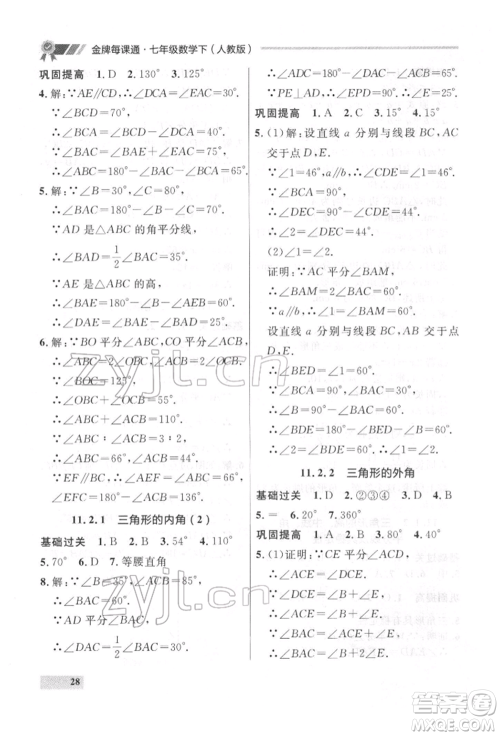 金牌每课通·七年级数学下(人教版)
巩固提高 1. D 2. 130° 3. 125°
4. 解:∵AE//CD,∴∠BAE=∠BCD.
∴∠BCD=70°,
∴∠BCA=∠BCD-∠ACD=40°.
∵∠BAC=60°,
∴∠ABC=180°-∠BAC-∠BCA=80°.
5. 解:∵∠B=30°,∠C=80°,
∴∠BAC=180°-∠B-∠C=70°.
∵AD 是△ABC 的角平分线,
∴∠BAD=1/2∠BAC=35°.
∵AE 是△ABC 的高,
∴∠BAE=180°-∠B-90°=60°.
∴∠DAE=∠BAE-∠BAD=25°.
6. 解:∵BO 平分∠ABC,CO 平分∠ACB,
∵∠BOC=125°,
∴∠OBC+∠OCB=55°.
∴∠ABC+∠ACB=110°.
∵∠ABC:∠ACB=3:2,
∴∠ABC=66°.
∵EF//BC,∴∠BEF+∠ABC=180°.
∴∠BEF=180°-66°=114°.
11. 2. 1 三角形的内角(2)
基础过关 1. D 2. B 3. 54 4. 110°
5. 70° 6. D 7. 等腰直角
8. 解:∵∠B=35°,∠C=85°,
∴∠BAC=60°.
∵AD 平分∠BAC,
∴∠DAC=1/2∠BAC=30°.
∴∠ADC=180°-∠DAC-∠C=65°.
∵PE⊥AD,∴∠EPD=90°,∴∠E=25°.
巩固提高 1. A 2. C 3. 15° 4. 15°
5. (1)解:设直线 a 分别与线段 BC,AC
交于点 D,E.
∵∠1=46°,a//b,∴∠CDE=∠1=46°.
∵∠ACB=90°,
∴∠CED=90°-∠CDE=44°.
∴∠2=∠CED=44°.
(2)∠2=∠1.
证明:∵AC 平分∠BAM,
∴∠BAM=2∠BAC=60°.
∵a//b,∴∠BED=∠BAM=60°.
设直线 a 与线段 BC,AB 交于点
D,E.
∴∠BED=∠1=60°.
∵∠BAC=30°,∠ACB=90°,
∴∠ABC=60°.
∴∠BDE=60°.
∴∠2=∠BDE=60°.
∴∠2=∠1.
11. 2. 2 三角形的外角
基础过关 1. D 2. ②③④ 3. D 4. B
5. = 6. 20° 7. 360°
巩固提高 1. D 2. B 3. 80° 4. 40°
5. (1)证明:∵CE 平分∠ACD,
∴∠ACE=∠DCE.
∵∠DCE=∠B+∠E,
∴∠ACE=∠B+∠E.
∵∠BAC=∠ACE+∠E,
∴∠BAC=∠B+∠E+∠E=
∠B+2∠E.
28
zyjl.cn
zyjl.cn
答案圈